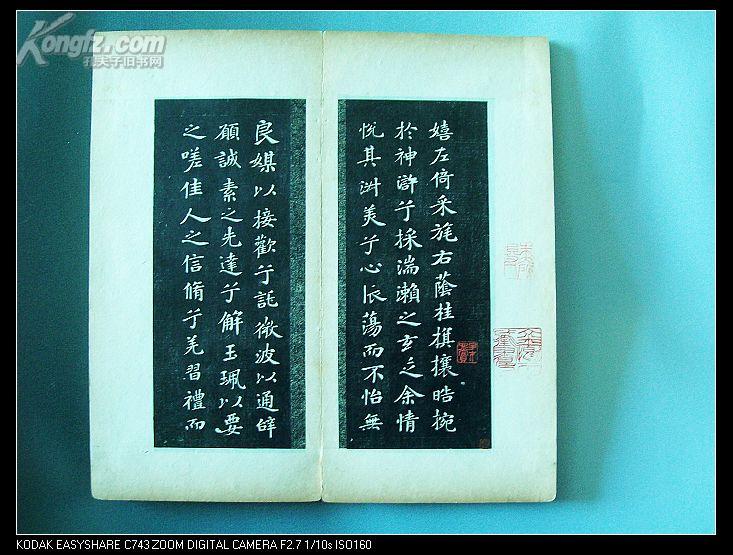 Kongfz.com
孔夫子旧书网
嬉左倚采旄右蔭桂旗攘皓捥
於神滸兮採湍瀨之玄芝余情
悅其淑美兮心振蕩而不怡無
良媒以接歡兮託微波以通辭
願誠素之先達兮解玉珮以要
之嗟佳人之信脩兮羌習禮而
KODAK EASYSHARE C743 ZOOM DIGITAL CAMERA F2.7 1/10s ISO160